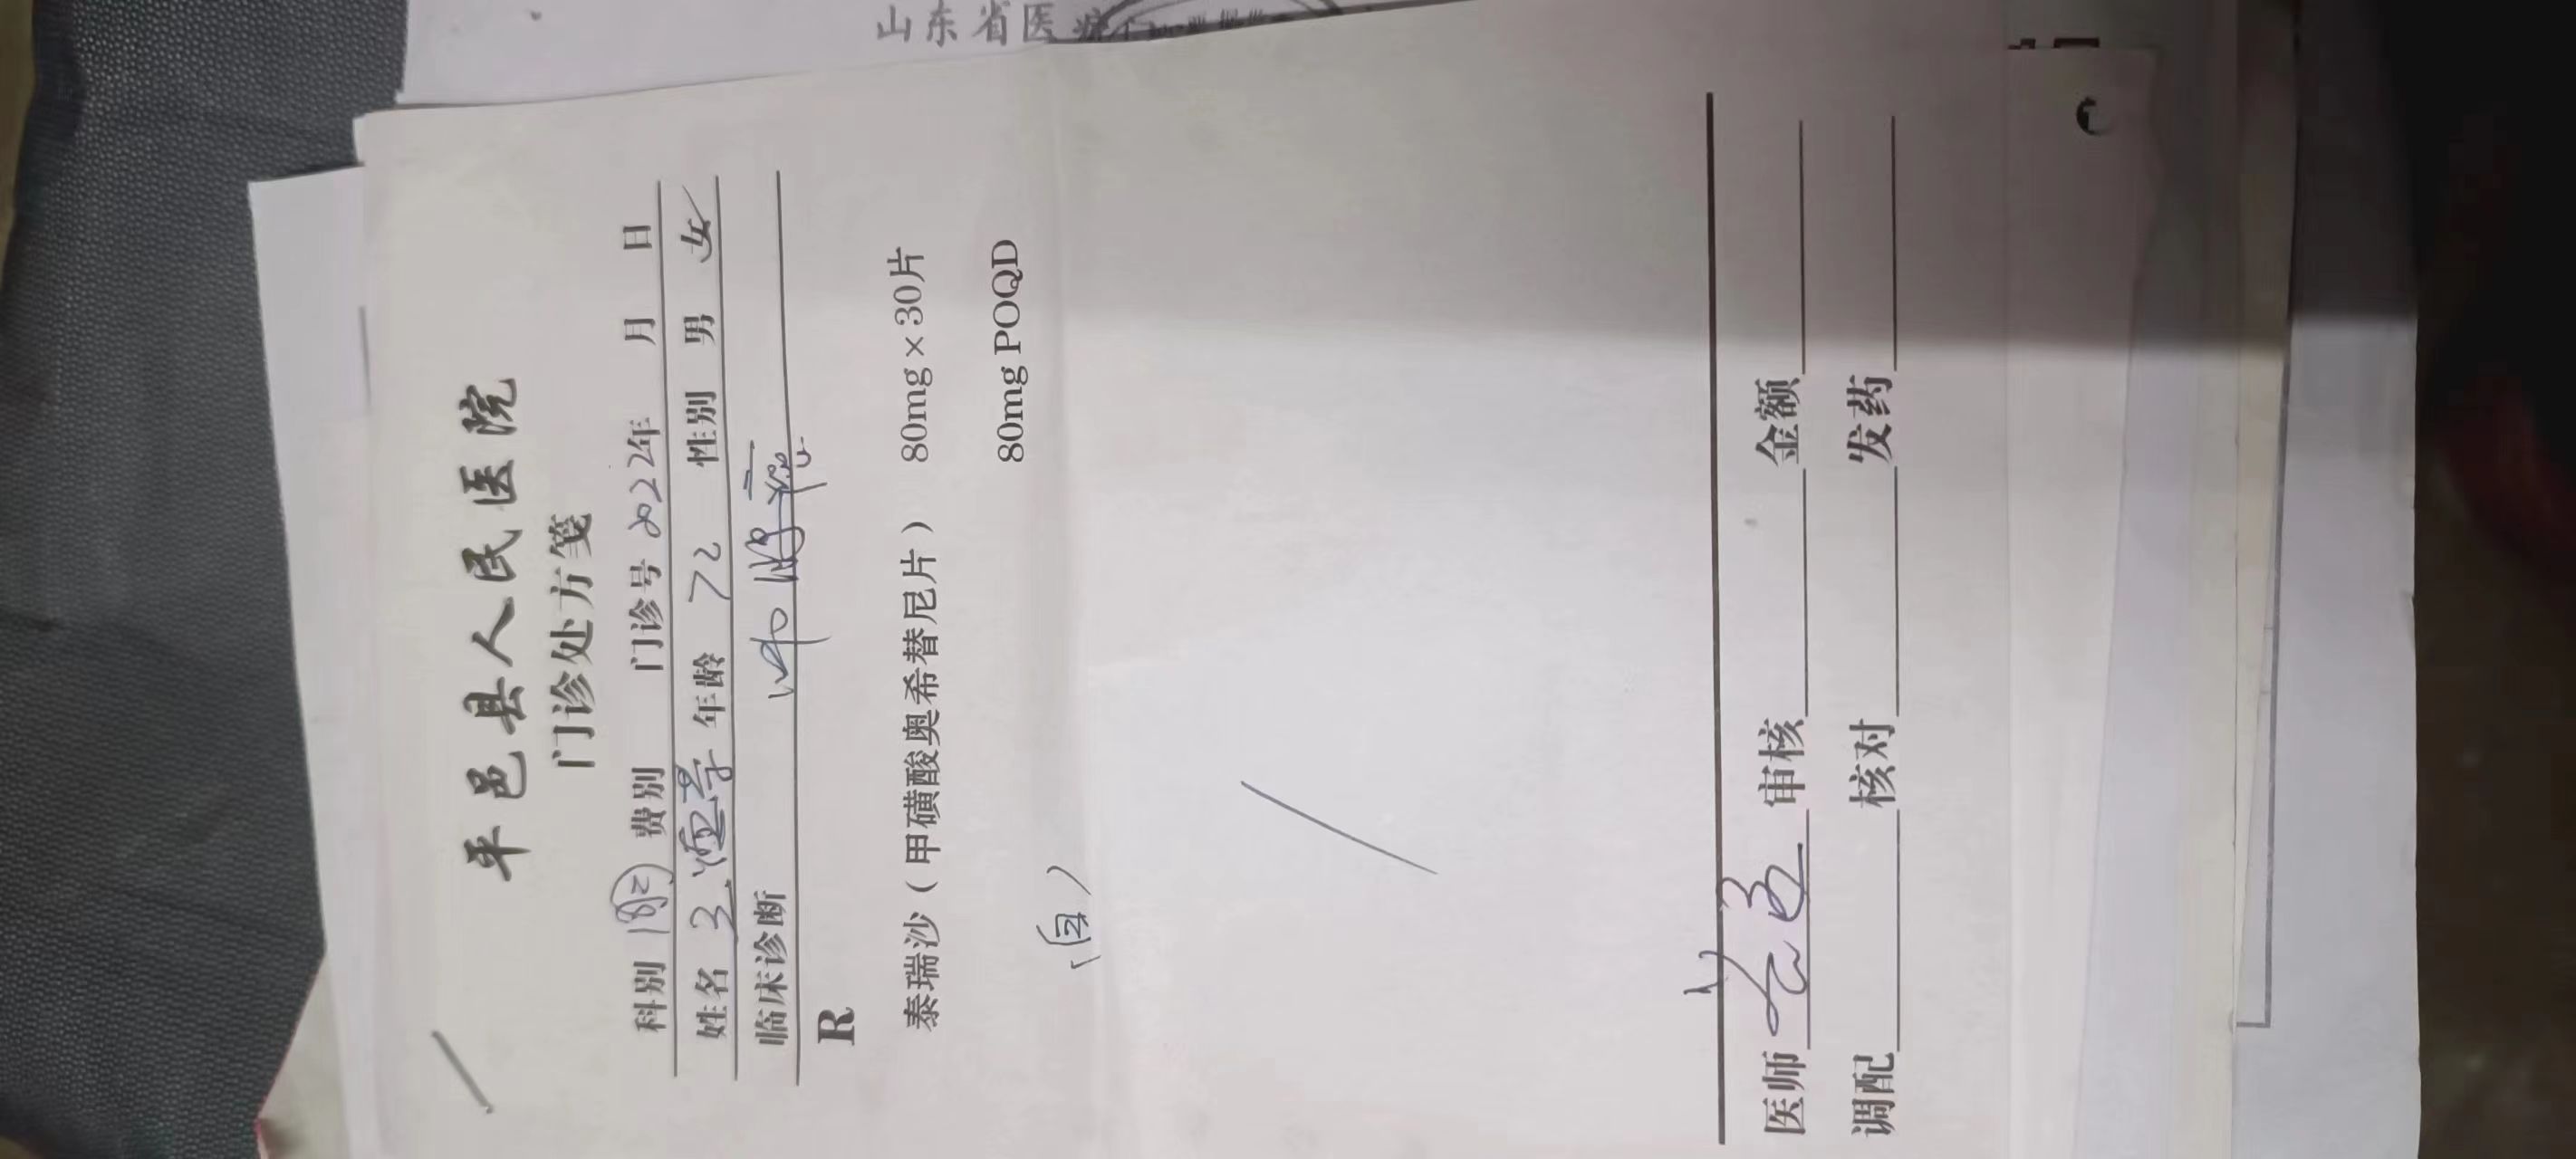 山东省医疗
平邑县人民医院
门诊处方笺
科别 费别 门诊号 2022年 月 日
姓名 年龄 72 性别 男 女
临床诊断
R
泰瑞沙（甲磺酸奥希替尼片） 80mg×30片
80mg POQD
（自）
医师 审核 金额
调配 核对 发药